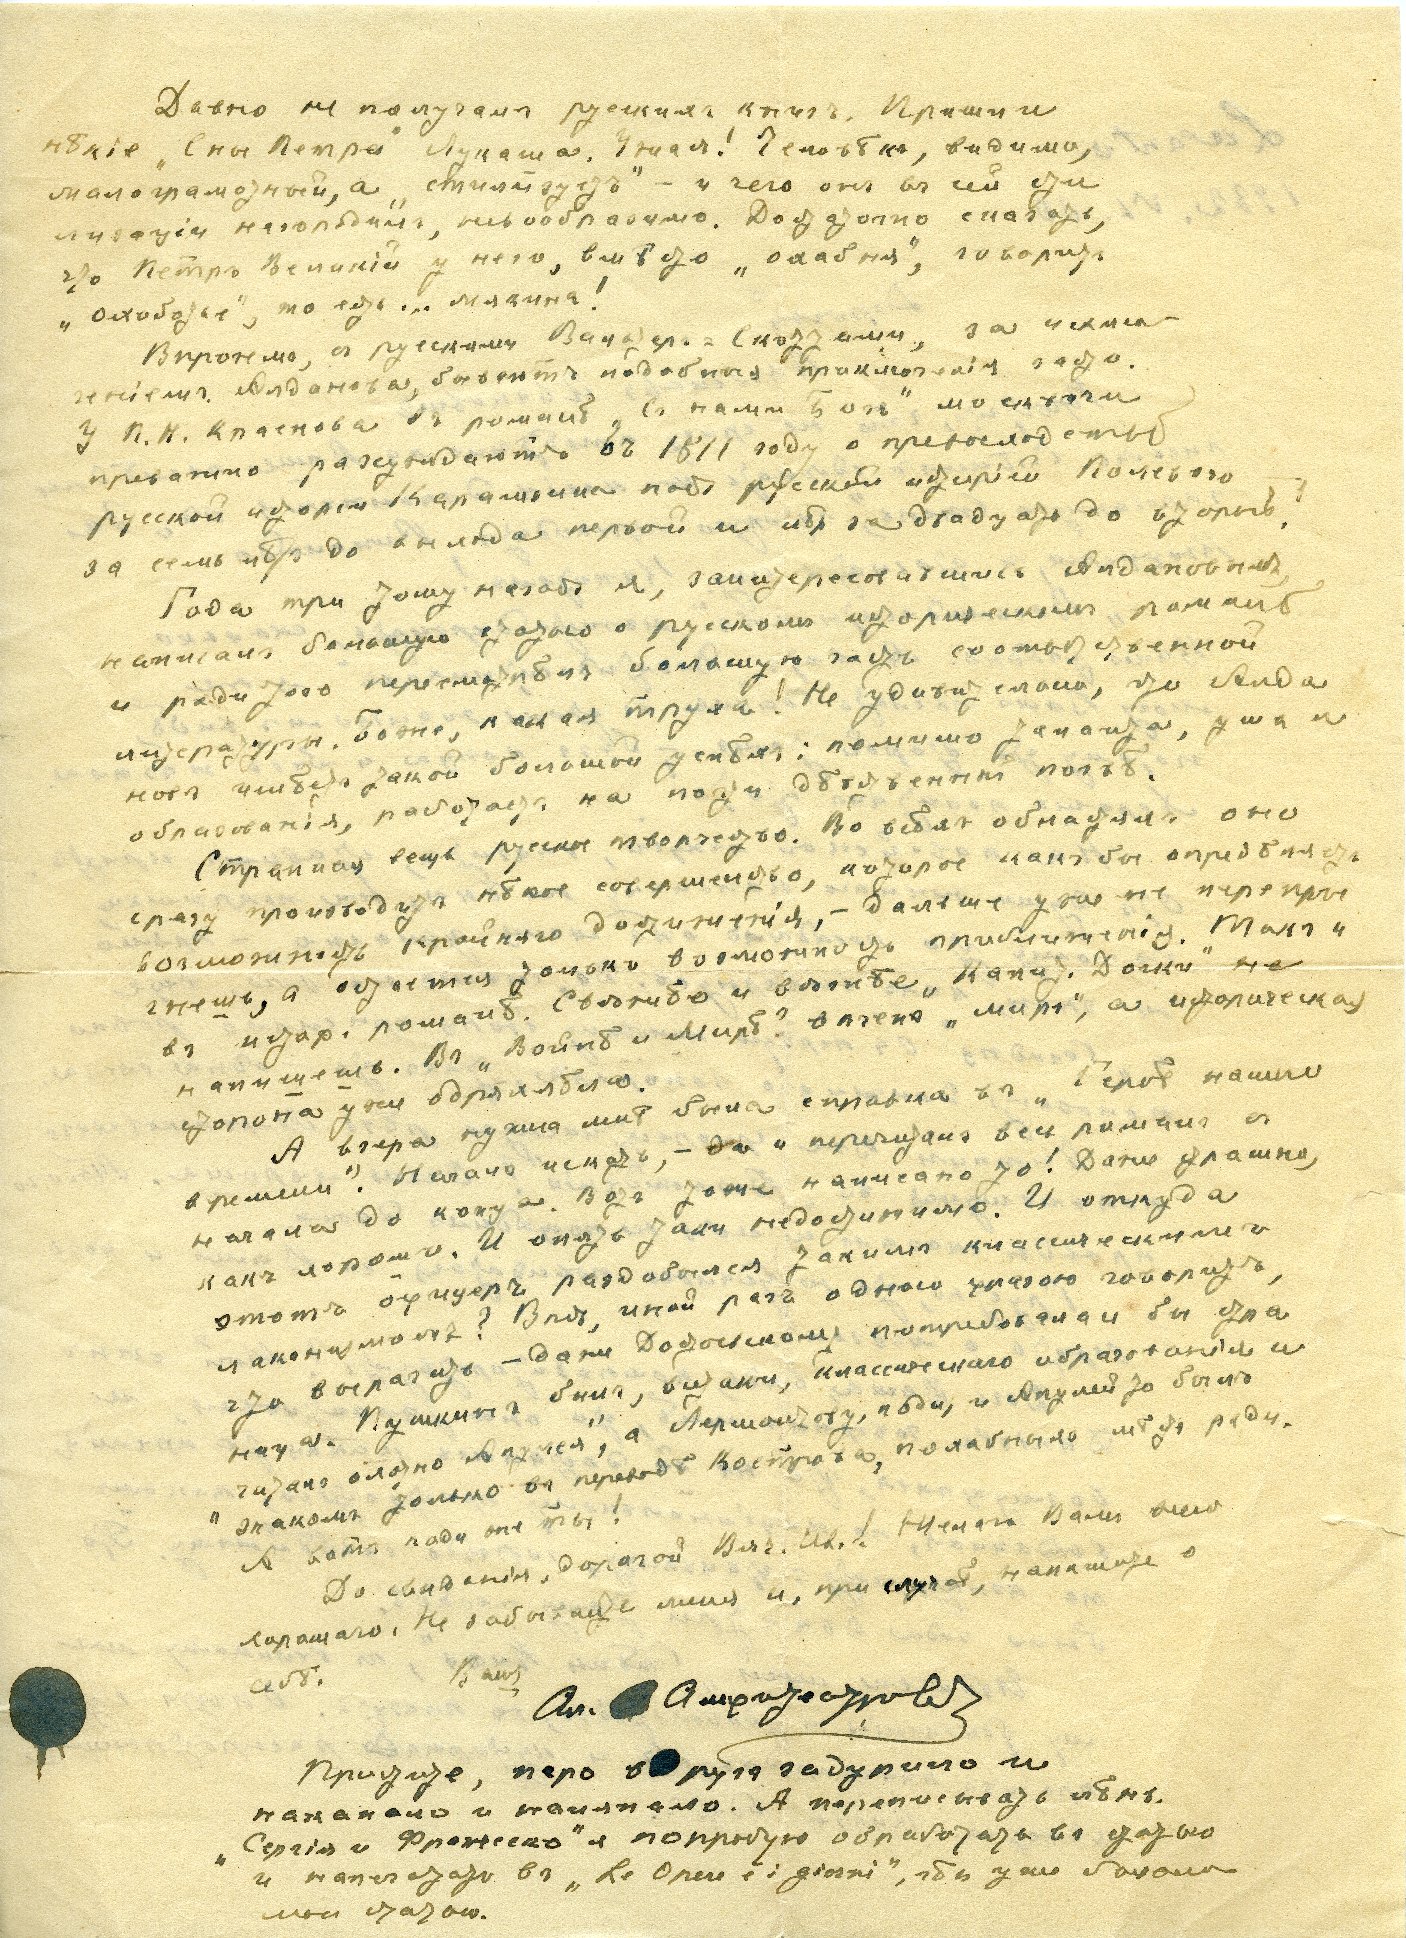 Давно не получалъ русскихъ книгъ. Пришли
нѣкіе „Сны Петра" Лукаша. Ужас! Человѣкъ, видимо,
малограмотный, а „стилизуетъ" – и чего онъ въ сей сти
лизаціи нагородилъ, невообразимо. Достаточно сказать,
что Петръ Великій у него, вмѣсто „охабня", говоритъ
„охоботье", то есть... мякина!
Впрочемъ, съ русскими Вальтеръ-Скоттами, за исклю-
ченіемъ Алданова, бываютъ подобныя приключенія часто.
У П. Н. Краснова въ романѣ „Съ нами Богъ" москвичи
преважно разсуждаютъ въ 1811 году о превосходствѣ
русской исторіи Карамзина надъ русской исторіей Полевого
за семь лѣтъ до выхода первой и лѣтъ за двадцать до второй!
Года три тому назадъ я, заинтересовавшись Алдановымъ,
написалъ большую статью о русскомъ историческомъ романѣ
и ради того пересмотрѣлъ большую часть соотвѣтственной
литературы. Боже, какая труха! Не удивительно, что Алда
новъ имѣетъ такой большой успѣхъ: помимо таланта, ума и
образованія, работаетъ на почти дѣвственной почвѣ.
Странная вещь русское творчество. Во всѣхъ областяхъ оно
сразу производитъ нѣкое совершенство, которое какъ бы опредѣляетъ
возможность крайняго достиженія, – дальше уже не перепрыг
гнешь, а остается только возможность приближенія. Такъ и
въ истор. романѣ. Свѣжѣе и выше „Капит. Дочки" не
напишешь. Въ „Войнѣ и Мирѣ" вѣченъ „миръ", а историческая
сторона уже одряхлѣла.
А вчера нужна мнѣ была справка въ „Героѣ нашего
времени". Началъ искать, – да и перечиталъ весь романъ съ
начала до конца. Вотъ тоже написано-то! Даже страшно,
какъ хорошо. И опять таки недостижимо. И откуда
этотъ офицеръ раздобылся такимъ классическимъ
лаконизмомъ? Вѣдь, иной разъ одною фразою говоритъ,
что выразить – даже Достоевскому потребовалась бы стра
ница. Пушкинъ былъ, все таки, классическаго образованія и
„читалъ охотно Апулея", а Лермонтову, поди, и Апулей-то былъ
знакомъ только въ переводѣ Кострова, похабныхъ мѣстъ ради.
А вотъ поди же ты!
До свиданія, дорогой Вяч. Ив.! Желаю Вамъ всего
хорошаго. Не забывайте меня и, при случаѣ, напишите о
себѣ. Вашъ
Ал. Амфитеатровъ
Простите, перо вдругъ задурило и
накапало и наляпало. А переписывать лѣнь.
„Сергія и Франческо" я попробую обработать въ статью
и напечатать въ „Le Opere e i giorni", гдѣ уже бывали
мои статьи.